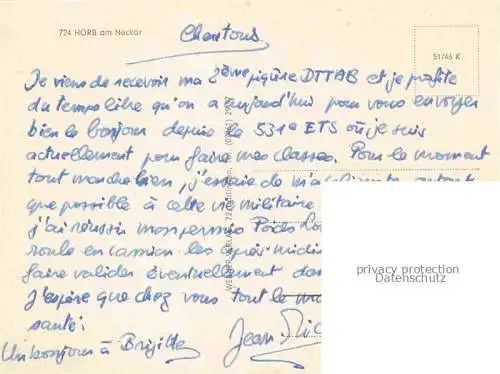 724 HORB am Neckar
Chantons
51/46 K
Je viens de recevoir ma 2ème piqûre DTTAB et je profite
du temps libre qu'on a aujourd'hui pour vous envoyer
bien le bonjour depuis le 531e ETS où je suis
actuellement pour faire mes classes. Pour le moment
tout marche bien, j'essaie de m'acclimater autant
que possible à cette vie militaire
j'ai réussi mon permis Poids Lo
roule en camion les après-midi
faire valider éventuellement da
J'espère que chez vous tout le m
santé.
Un bonjour à Brigitte
Jean Mic
privacy protection
Datenschutz